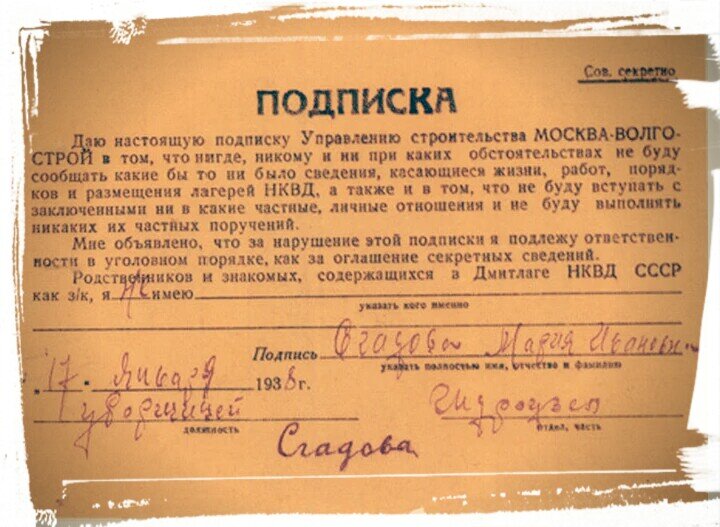 Сов. секретно
ПОДПИСКА
Даю настоящую подписку Управлению строительства МОСКВА-ВОЛГО-
СТРОЙ в том, что нигде, никому и ни при каких обстоятельствах не буду
сообщать какие бы то ни было сведения, касающиеся жизни, работ, поряд-
ков и размещения лагерей НКВД, а также и в том, что не буду вступать с
заключенными ни в какие частные, личные отношения и не буду выполнять
никаких их частных поручений.
Мне объявлено, что за нарушение этой подписки я подлежу ответствен-
ности в уголовном порядке, как за оглашение секретных сведений.
Родственников и знакомых, содержащихся в Дмитлаге НКВД СССР
как з/к, я не имею
указать кого именно
Подпись Сгадова Мария Ивановна
указать полностью имя, отчество и фамилию
„17" Января 1938 г.
уборщицей Гидроузел
должность отдел, часть
Сгадова